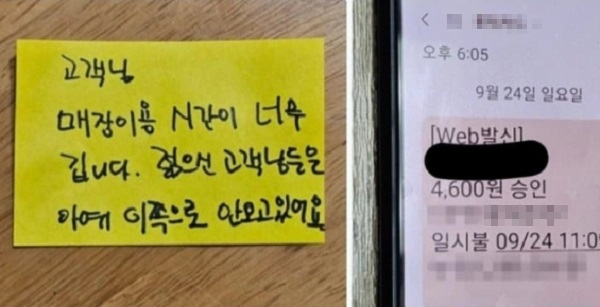 고객님
매장이용 시간이 너무
깁니다. 젊으신 고객님들은
아예 이쪽으로 안오고있어요
오후 6:05
9월 24일 일요일
[Web발신]
4,600원 승인
일시불 09/24 11:0